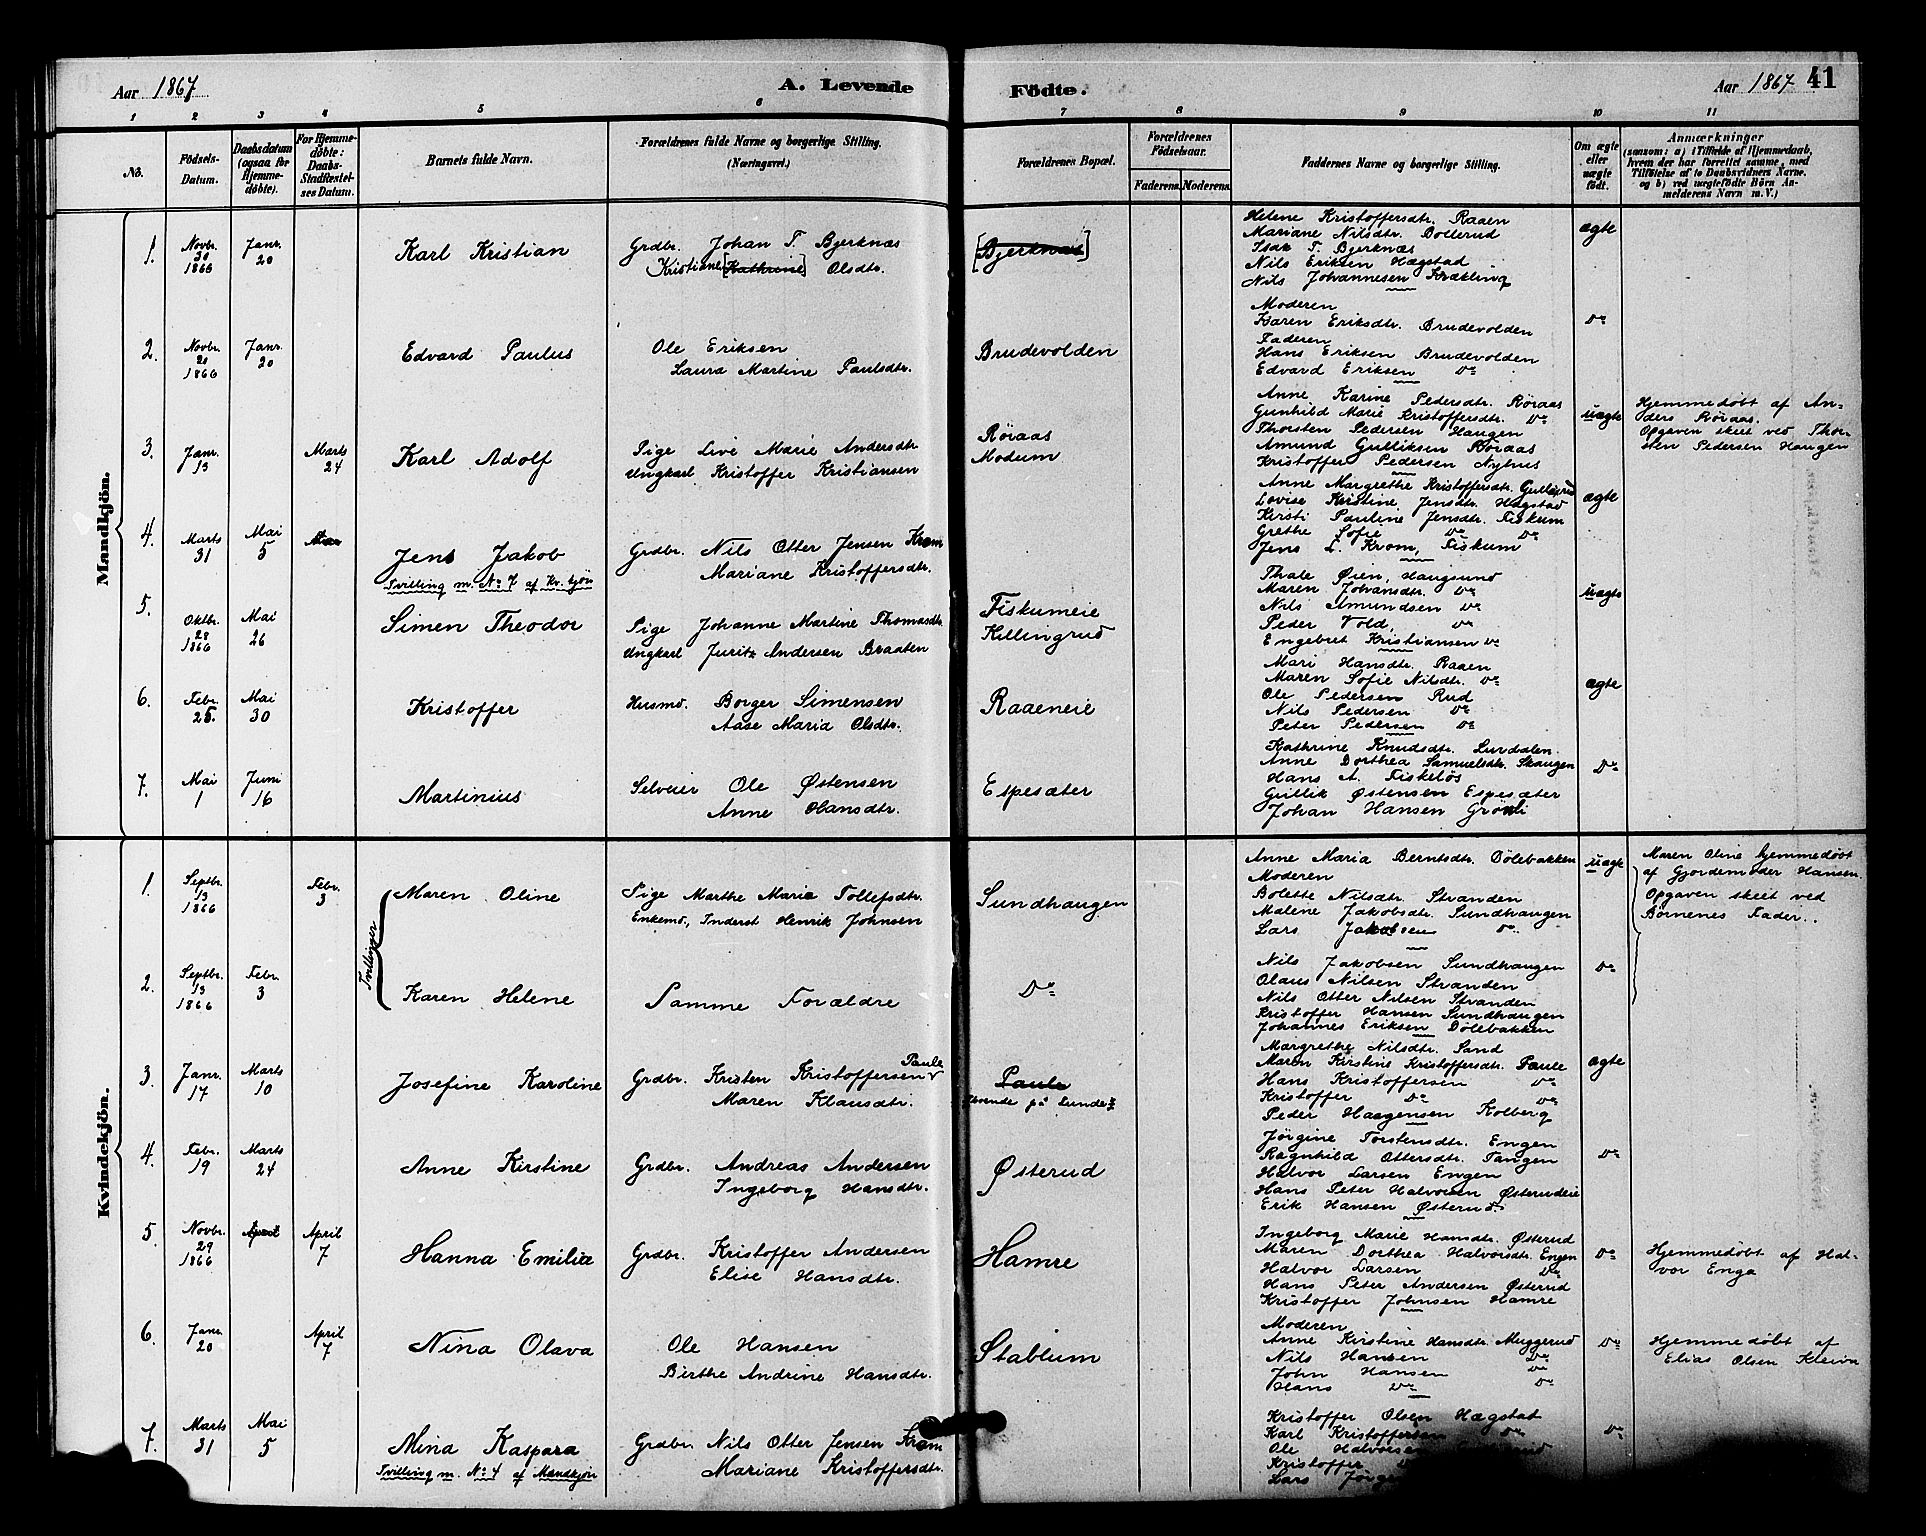 Aar 1867
A. Levende
Födte.
Aar 1867
41
1 2 3 4 5 6 7 8 9 10 11
No.
Födsels-Datum.
Daabsdatum (ogsaa for Hjemme-döbte).
For Hjemme-döbte: Daabs-Stadfæstel-ses Datum.
Barnets fulde Navn.
Forældrenes fulde Navne og borgerlige Stilling. (Næringsvei.)
Forældrenes Bopæl.
Forældrenes Födselsaar.
Faderens. Moderens.
Faddernes Navne og borgerlige Stilling.
Om ægte eller uægte födt.
Anmærkninger
(saasom: a) i Tilfælde af Hjemmedaab, hvem der har forrettet samme, med Tilföielse af to Daabsvidners Navne. og b) ved uægtefödte Börn An-melderens Navn m. V.)
Mandkjön.
1. Novbr. 30 1866 Janr. 20 Karl Kristian
Grdbr. Johan T. Bjerknæs
Kristiane [Kathrine] Olsdtr.
[Bjerknæs]
Helene Kristoffersdtr. Raaen
Mariane Nilsdtr. Bollerud
Isak T. Bjerknæs
Nils Eriksen Hægstad
Nils Johannesen Krækling
ægte
2. Novbr. 20 1866 Janr. 20 Edvard Paulus
Ole Eriksen
Laura Martine Paulsdtr.
Brudevolden
Moderen
Karen Eriksdtr. Brudevolden
Faderen
Hans Eriksen Brudevolden
Edvard Eriksen Do
Do
3. Janr. 13 Marts 24 Karl Adolf
Pige Live Marie Andersdtr
Ungkarl Kristoffer Kristiansen
Röraas
Modum
Anne Karine Pedersdtr. Röraas
Gunhild Marie Kristoffersdtr. Do
Thorsten Pedersen Haugen
Amund Gulliksen Röraas
Kristoffer Pedersen Nyhus
uægte
Hjemmedøbt af An-
ders Röraas.
Opgaven skeet ved Thor-
sten Pedersen Haugen
4. Marts 31 Mai 5 Jens Jakob
Tvilling m. No 7 af Kv. kjön
Grdbr. Nils Otter Jensen Krom
Mariane Kristoffersdtr.
Anne Margrethe Kristoffersdtr. Gulliksrud
Lovise Kristine Jensdtr. Hægstad
Kirsti Pauline Jensdtr. Fiskum
Grethe Sofie Do Do
Jens L. Krom, Fiskum
ægte
5. Oktbr. 28 1866 Mai 26 Simen Theodor
Pige Johanne Martine Thomasdtr
Ungkarl Juritz Andersen Braaten
Fiskumeie
Killingrud
Thale Øien, Haugsund
Maren Johansdtr. Do
Nils Amundsen Do
Peder Vold, Do
Engebret Kristiansen Do
uægte
6. Febr. 25. Mai 30 Kristoffer
Husmd. Borger Simensen
Aase Maria Olsdtr.
Raaeneie
Mari Hansdtr. Raaen
Maren Sofie Nilsdtr. Do
Ole Pedersen Rud
Nils Pedersen Do
Peter Pedersen Do
ægte
7. Mai 1 Juni 16 Martinius
Selveier Ole Østensen
Anne Hansdtr.
Espesæter
Kathrine Knudsdtr. Lurdalen
Anne Dorthea Samuelsdtr. Skaugen
Hans A. Fiskelös
Gullik Østensen Espesæter
Johan Hansen Grönli
Do
Kvindekjön.
Tvillinger
1. Septbr. 13 1866 Febr. 3 Maren Oline
Pige Marthe Marie Tollefsdtr.
Enkemd., Inderst Henrik Johnsen
Sundhaugen
Anne Maria Berntsdtr. Dölebakken
Moderen
Bolette Nilsdtr. Stranden
Malene Jakobsdtr. Sundhaugen
Lars Jakobsen Do
uægte
Maren Oline hjemmedöbt
af Gjordemoder Hansen.
Opgaven skeet ved
Börnenes Fader.
2. Septbr. 13 1866 Febr. 3 Karen Helene
Samme Forældre
Do
Nils Jakobsen Sundhaugen
Olaus Nilsen Stranden
Nils Otter Nilsen Stranden
Kristoffer Hansen Sundhaugen
Johannes Eriksen Dölebakken
Do
3. Janr. 17 Marts 10 Josefine Karoline
Grdbr. Kristen Kristoffersen Paule
Maren Klausdtr.
Paule
Margrethe Nilsdtr. Sand
Maren Kirstine Kristoffersdtr. Paule
Hans Kristoffersen Do
Kristoffer Do Do
Peder Haagensen Kolberg
ægte
4. Febr. 19 Marts 24 Anne Kirstine
Grdbr. Andreas Andersen
Ingeborg Hansdtr.
Østerud
Jörgine Torstensdtr. Engen
Ragnhild Ottersdtr. Tangen
Halvor Larsen Engen
Hans Peter Halvorsen Østerudeie
Erik Hansen Østerud
Do
5. Novbr. 29 1866 April April 7 Hanna Emilia
Grdbr. Kristoffer Andersen
Elise Hansdtr.
Hamre
Ingeborg Marie Hansdtr. Østerud
Maren Dorthea Halvorsdtr. Engen
Halvor Larsen Do
Hans Peter Andersen Østerud
Kristoffer Johnsen Hamre
Do
Hjemmedøbt af Hal-
vor Enga
6. Janr. 20 April 7 Nina Olava
Ole Hansen
Birthe Andrine Hansdtr.
Stablum
Moderen
Anne Kirstine Hansdtr. Muggerud
Nils Hansen Do
John Hansen Do
Hans Do Do
Do
Hjemmedøbt af
Elias Olsen Kleiva
7. Marts 31 Mai 5 Mina Kaspara
Tvilling m. No 4 af Mandkjön
Grdbr. Nils Otter Jensen Krom
Mariane Kristoffersdtr.
Kristoffer Olsen Hægstad
Karl Kristoffersen Do
Ole Halvorsen
Kristoffer
Lars
Do